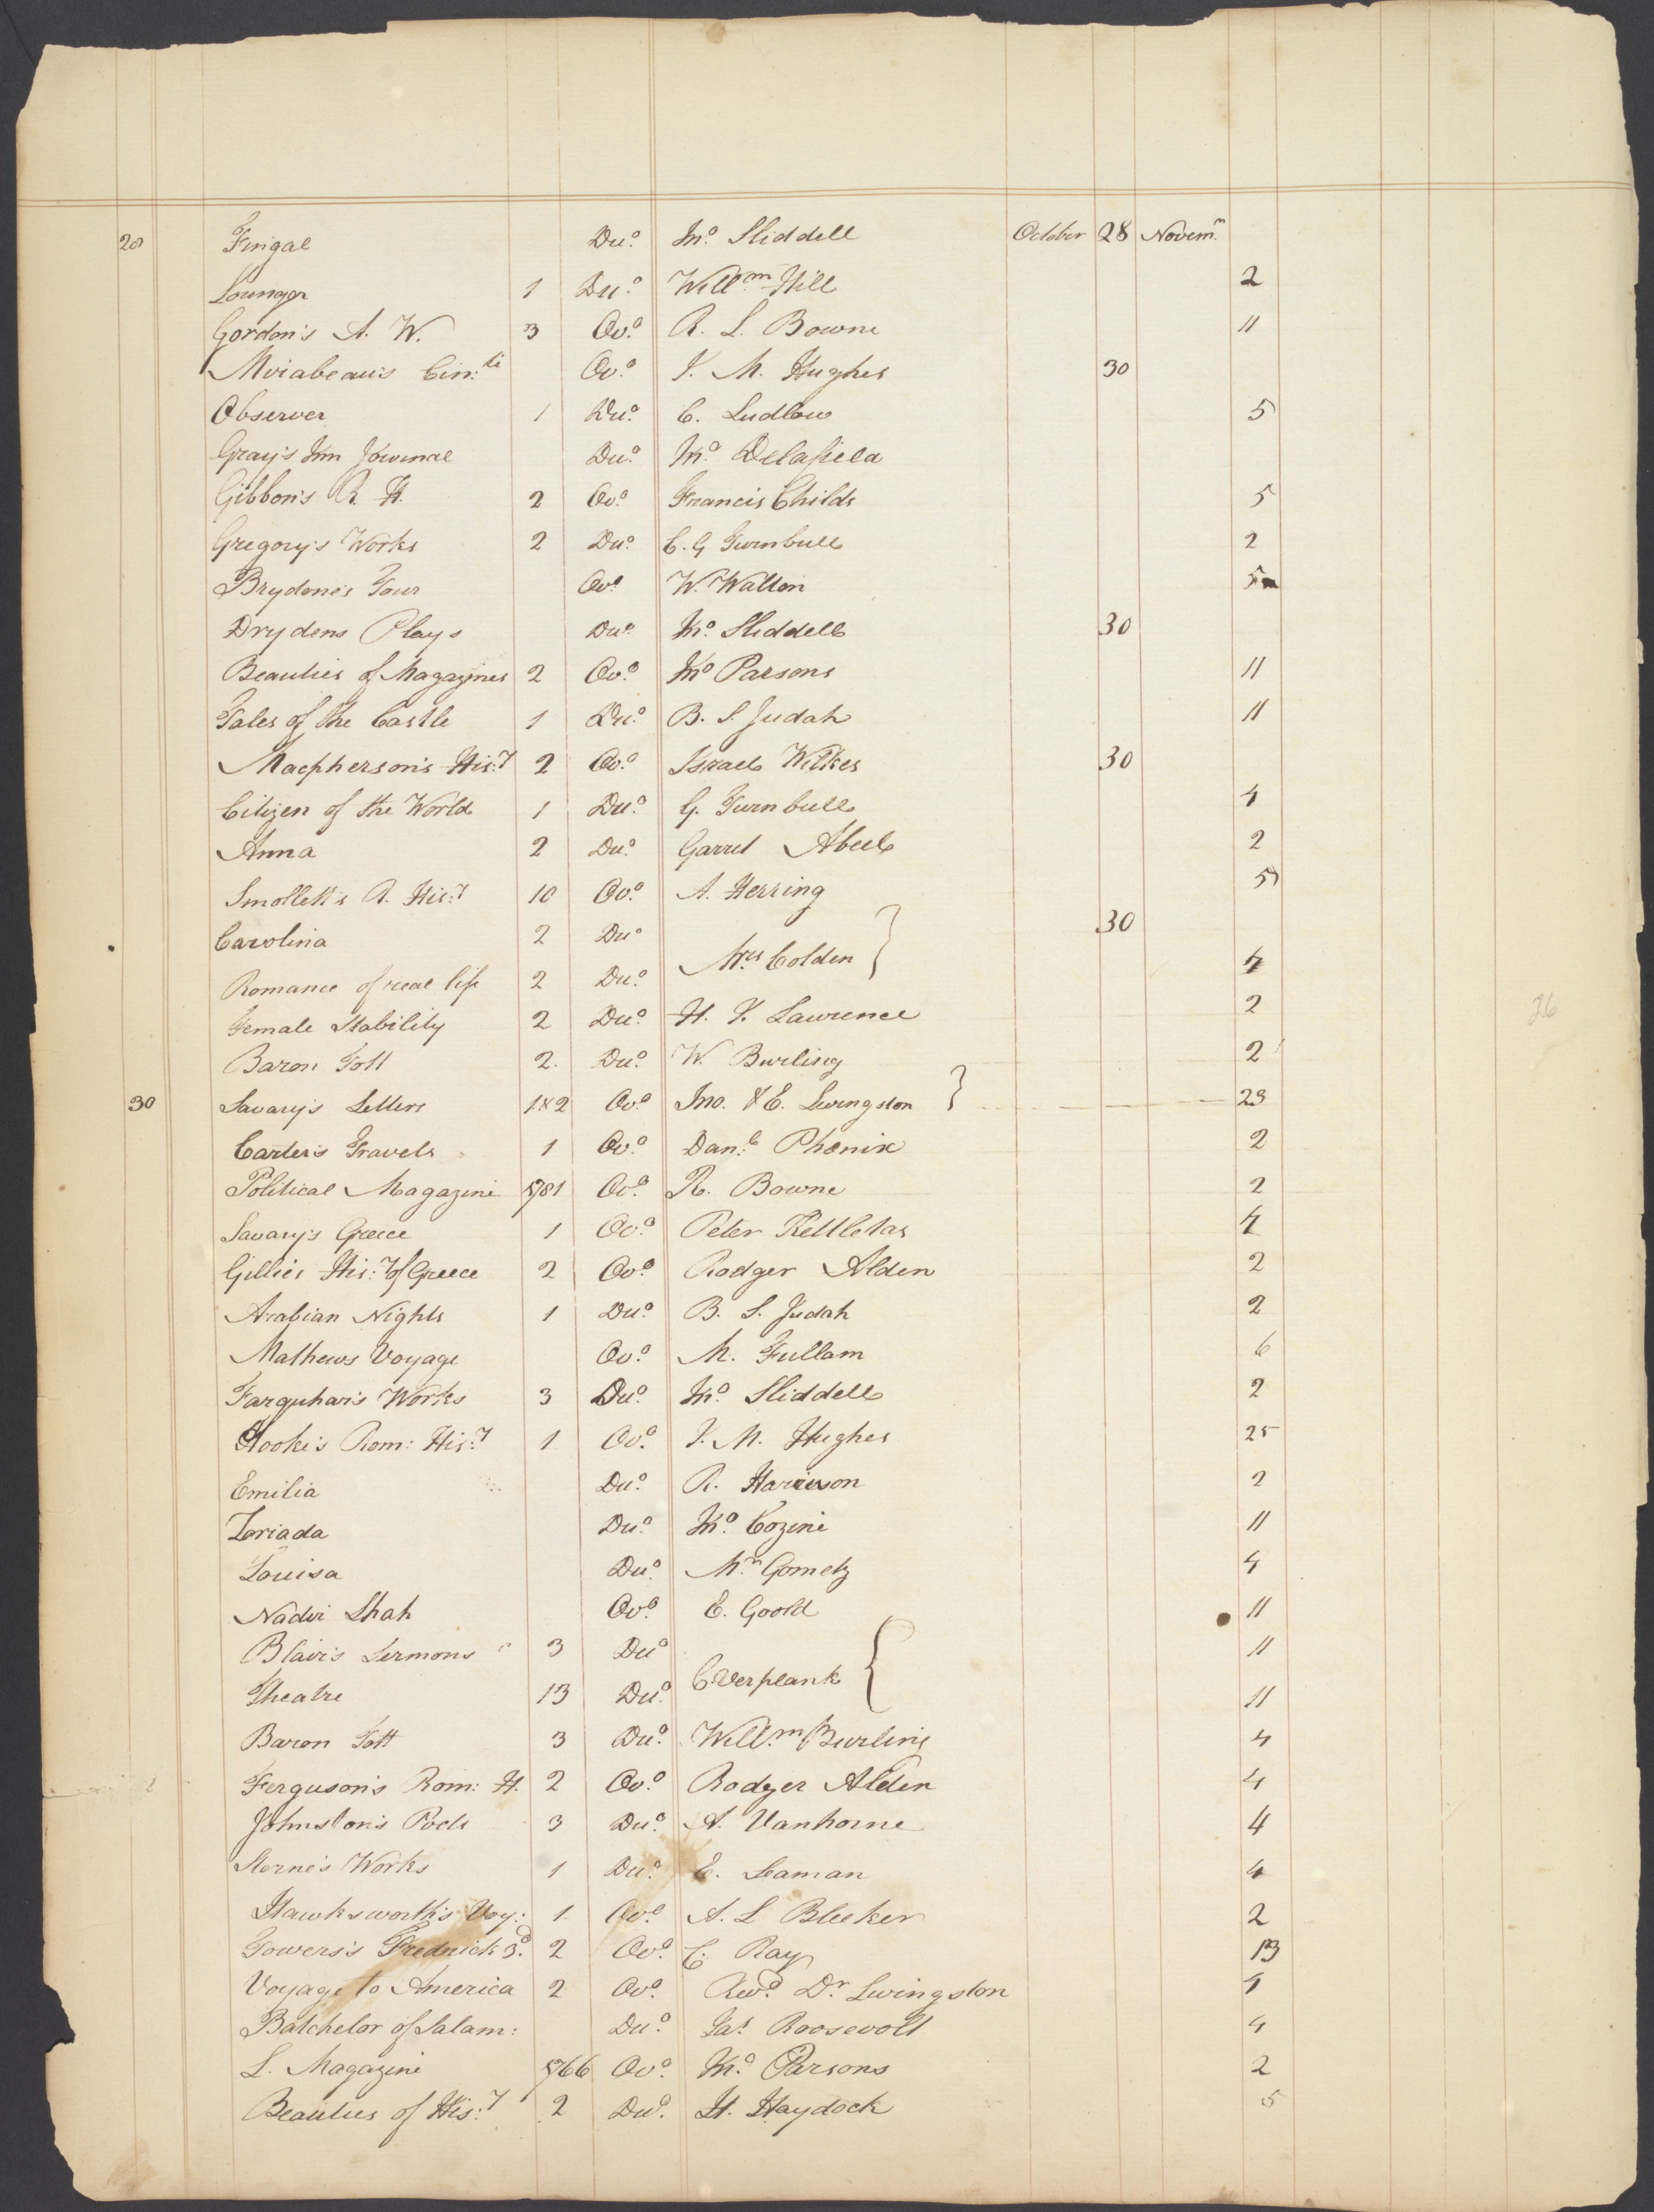 28 Fingal Duo. Jno. Sliddell October 28 Novemr.
Lounger 1 Duo. Willm. Hill 2
Gordon's A. W. 3 Ovo. R. L. Bowne 11
Mirabeau's Cin:ti Ovo. J. M. Hughes 30
Observer 1 Duo. C. Ludlow 5
Gray's Inn Journal Duo. Jno. Delafield
Gibbon's R. H. 2 Ovo. Francis Childs 5
Gregory's Works 2 Duo. C. G Turnbull 2
Brydone's Tour Ovo. W. Walton 5
Drydens Plays Duo. Jno. Sliddell 30
Beauties of Magazines 2 Ovo. Jno. Parsons 11
Tales of the Castle 1 Duo. B. S. Judah 11
Macpherson's His:y 2 Ovo. Israel Wilkes 30
Citizen of the World 1 Duo. G. Turnbull 4
Anna 2 Duo. Garret Abeel 2
Smollett's R. His:y 10 Ovo. A. Herring 5
Carolina 2 Duo 30
Mrs. Colden }
Romance of real life 2 Duo. 4
Female Stability 2 Duo. H. V. Lawrence 2
Baron Tott 2. Duo. W. Burling 2
30 Savary's Letters 1 & 2 Ovo. Jno. & E. Livingston } 23
Carter's Travels 1 Ovo. Danl. Phenix 2
Political Magazine 1781 Ovo. R. Bowne 2
Savary's Greece 1 Ovo. Peter Kettletas 4
Gillies His:y of Greece 2 Ovo. Rodger Alden 2
Arabian Nights 1 Duo. B. S. Judah 2
Mathews Voyage Ovo. M. Fullam 6
Farquhar's Works 3 Duo. Jno. Sliddell 2
Hooke's Rom: His:y 1 Ovo. J. M. Hughes 25
Emilia Duo. R. Harrison 2
Zoriada Duo. Jno. Cozine 11
Louisa Duo. Mr. Gometz 4
Nadir Shah Ovo. E. Goold 11
Blair's Sermons 3 Duo 11
C Verplank {
Theatre 13 Duo. 11
Baron Tott 3 Duo. Willm. Burling 4
Ferguson's Rom: H. 2 Ovo. Rodger Alden 4
Johnston's Poets 3 Duo. A. Vanhorne 4
Sterne's Works 1 Duo. E. Seaman 4
Hawksworth's Voy: 1 Ovo. A. L Bleeker 2
Towers's Fredrick 3d. 2 Ovo. C. Ray 13
Voyage to America 2 Ovo. Revd. Dr. Livingston 4
Batchelor of Salam: Duo. Jas. Roosevolt 4
L. Magazine 1766 Ovo. Jno. Parsons 2
Beauties of His:y 2 Duo. H. Haydock 5
26